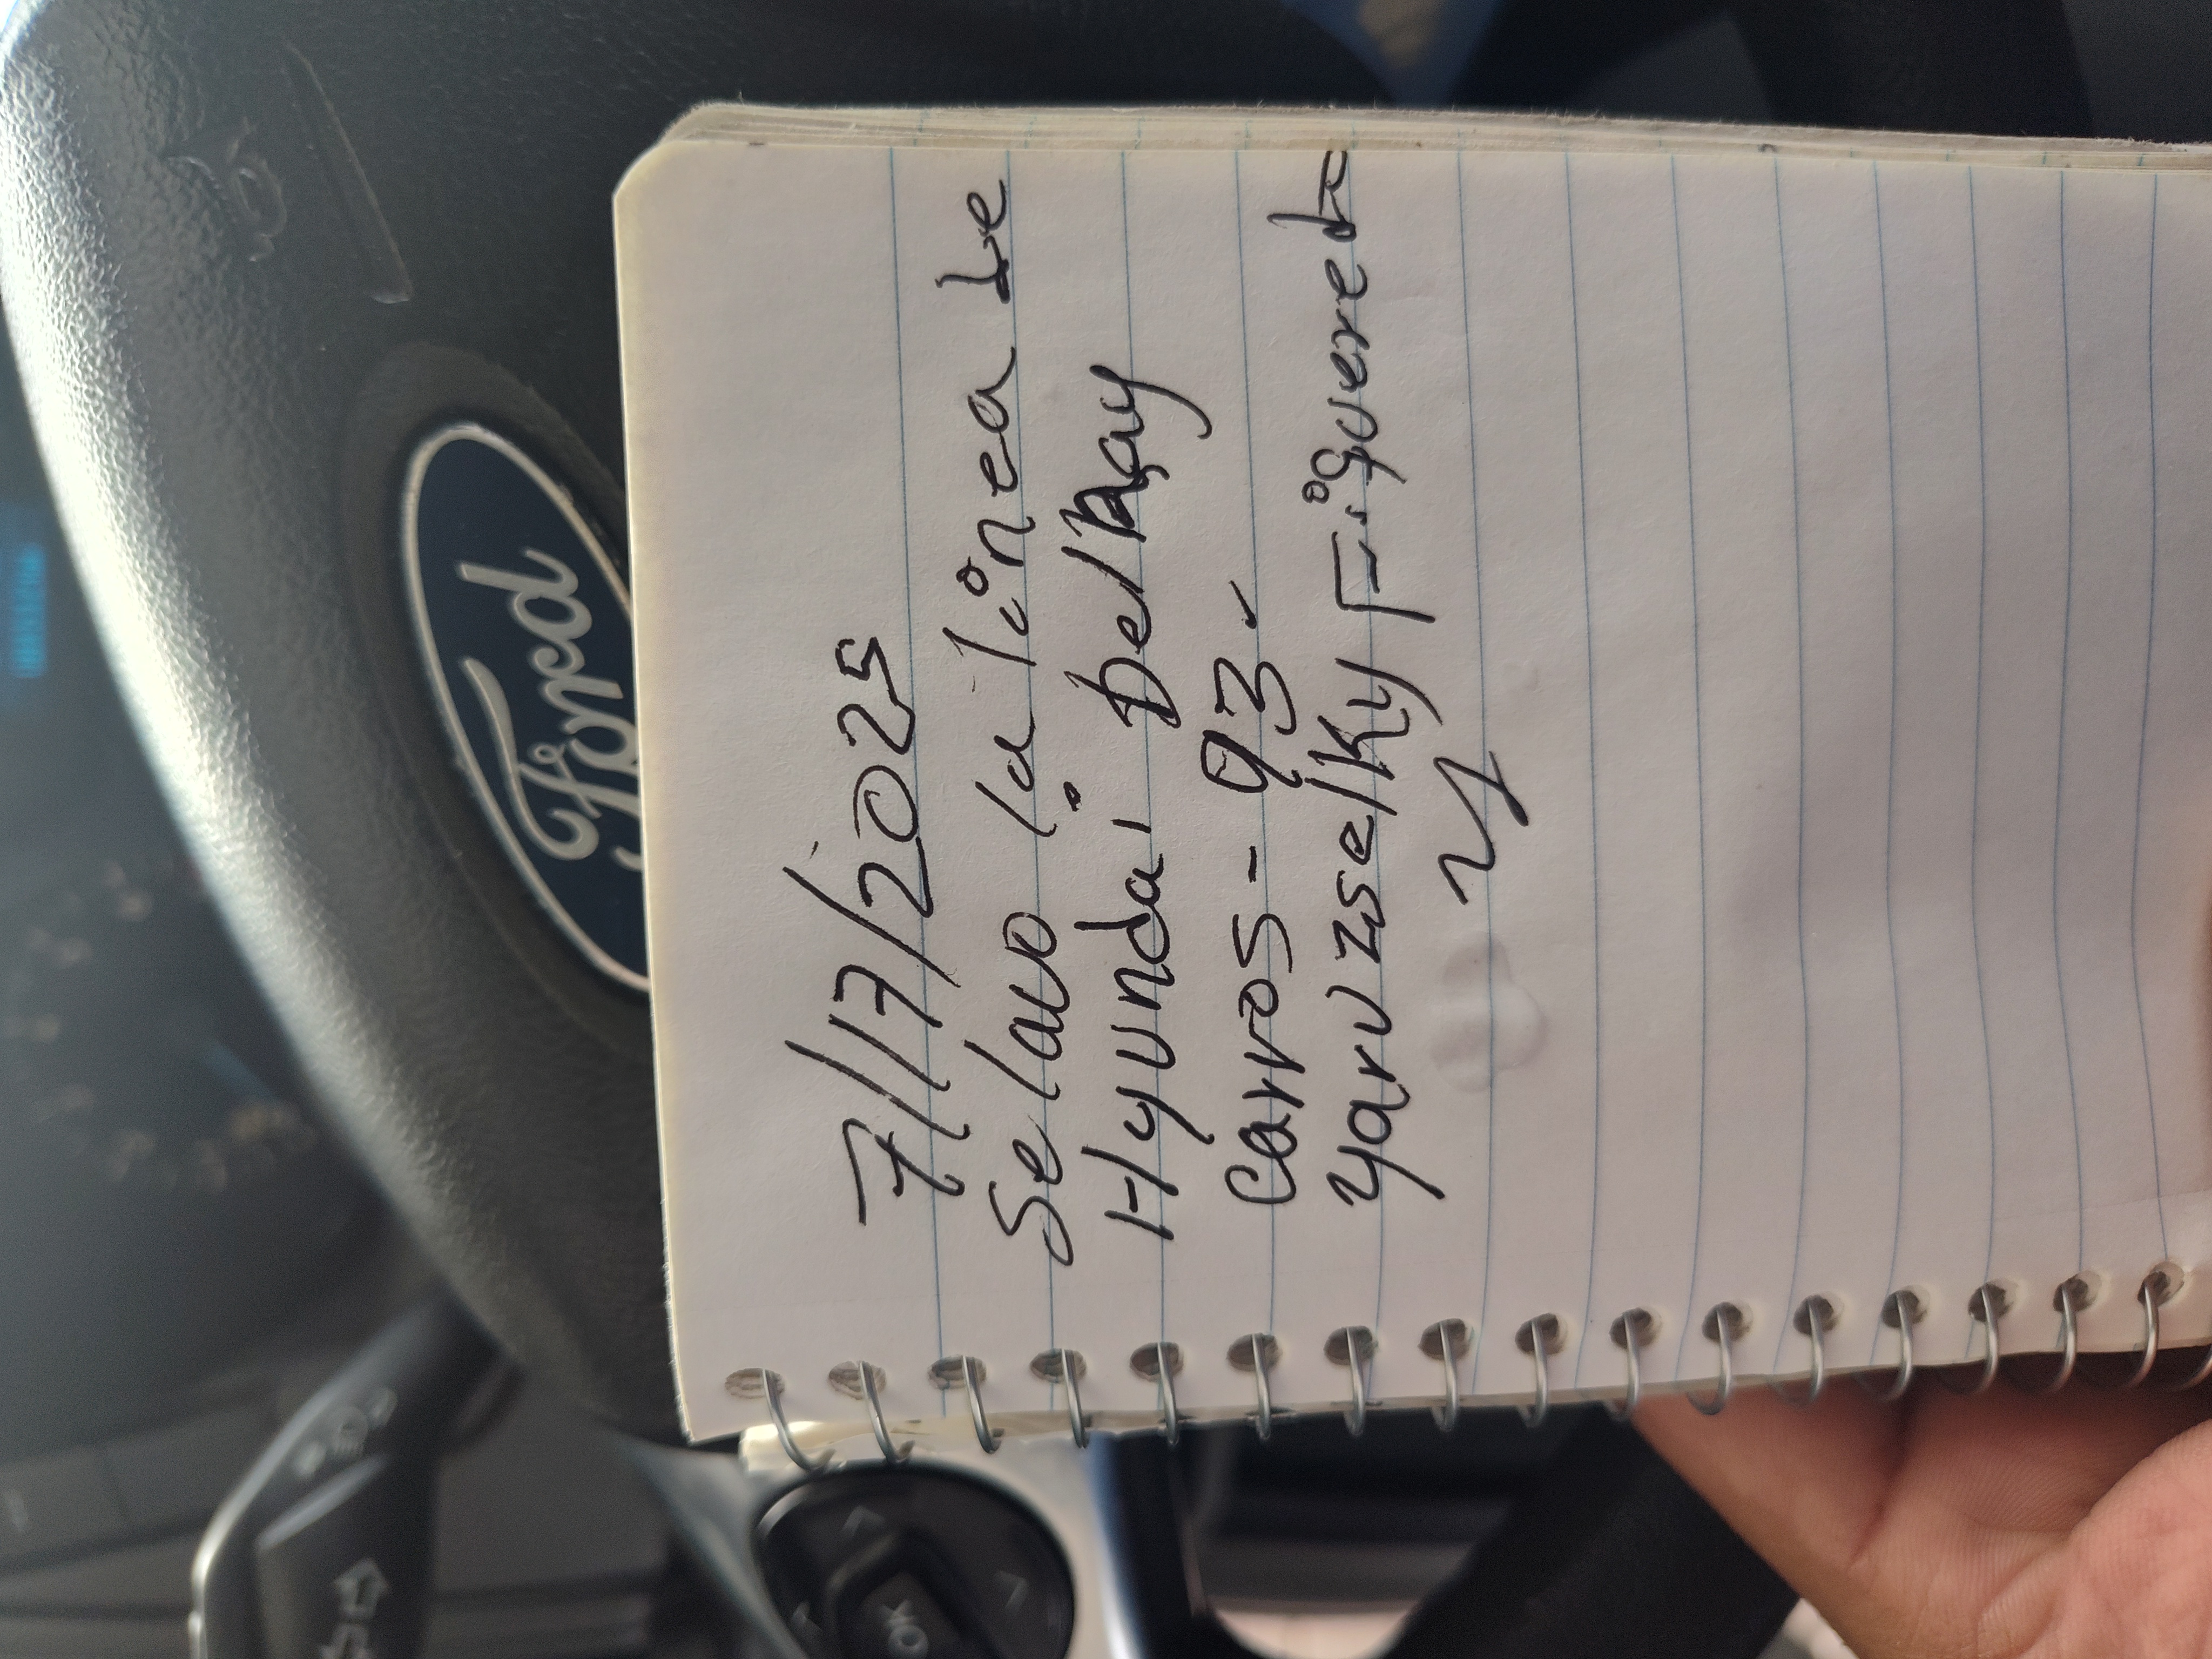 Ford
OK
7/17/2025
Se lavo la linea de
Hyundai Delray
Carros - 93
yaruzselky Figuered
y